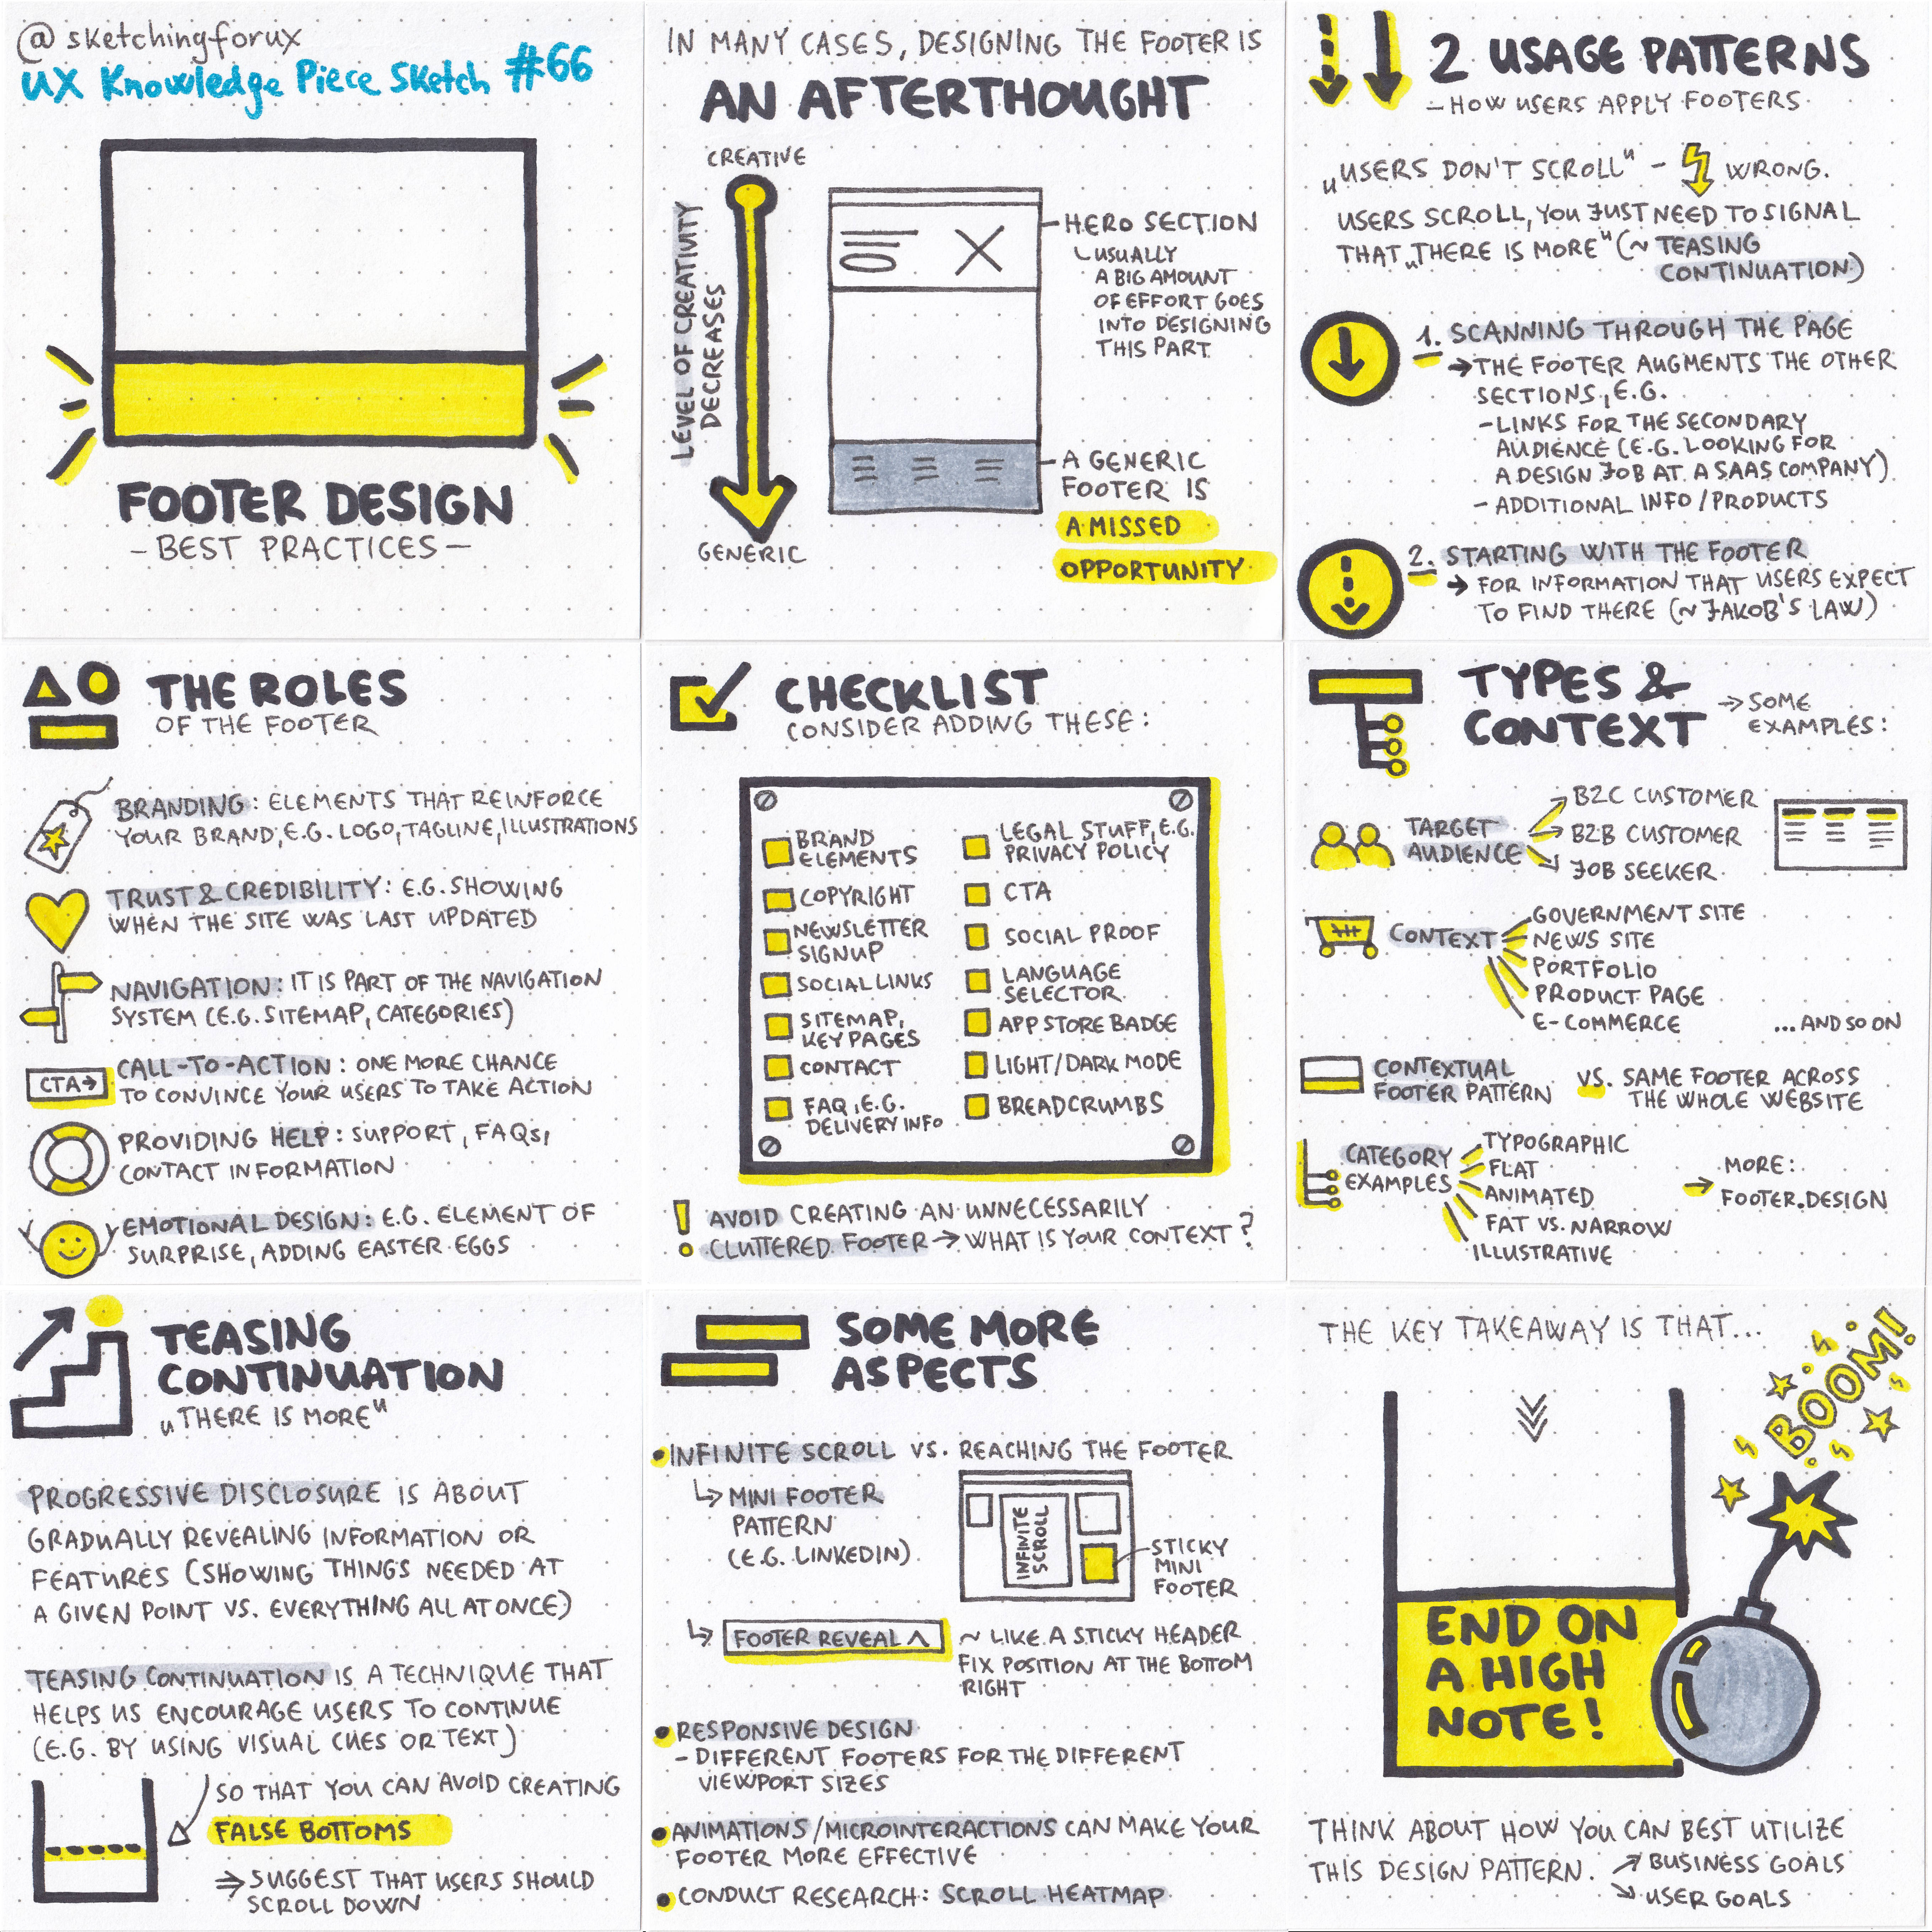 @sketchingforux
UX Knowledge Piece Sketch #66
FOOTER DESIGN
- BEST PRACTICES -
IN MANY CASES, DESIGNING THE FOOTER IS
AN AFTERTHOUGHT
CREATIVE
LEVEL OF CREATIVITY
DECREASES
GENERIC
HERO SECTION
USUALLY
A BIG AMOUNT
OF EFFORT GOES
INTO DESIGNING
THIS PART
A GENERIC
FOOTER IS
A MISSED
OPPORTUNITY
2 USAGE PATTERNS
- HOW USERS APPLY FOOTERS
„USERS DON'T SCROLL" - WRONG.
USERS SCROLL, YOU JUST NEED TO SIGNAL
THAT „THERE IS MORE" (~ TEASING
CONTINUATION)
1. SCANNING THROUGH THE PAGE
→ THE FOOTER AUGMENTS THE OTHER
SECTIONS, E.G.
- LINKS FOR THE SECONDARY
AUDIENCE (E.G. LOOKING FOR
A DESIGN JOB AT A SAAS COMPANY)
- ADDITIONAL INFO/PRODUCTS
2. STARTING WITH THE FOOTER
→ FOR INFORMATION THAT USERS EXPECT
TO FIND THERE (~ JAKOB'S LAW)
THE ROLES
OF THE FOOTER
BRANDING: ELEMENTS THAT REINFORCE
YOUR BRAND, E.G. LOGO, TAGLINE, ILLUSTRATIONS
TRUST & CREDIBILITY: E.G. SHOWING
WHEN THE SITE WAS LAST UPDATED
NAVIGATION: IT IS PART OF THE NAVIGATION
SYSTEM (E.G. SITEMAP, CATEGORIES)
CTA→
CALL-TO-ACTION: ONE MORE CHANCE
TO CONVINCE YOUR USERS TO TAKE ACTION
PROVIDING HELP: SUPPORT, FAQs,
CONTACT INFORMATION
EMOTIONAL DESIGN: E.G. ELEMENT OF
SURPRISE, ADDING EASTER EGGS
CHECKLIST
CONSIDER ADDING THESE:
BRAND
ELEMENTS
COPYRIGHT
NEWSLETTER
SIGNUP
SOCIAL LINKS
SITEMAP,
KEY PAGES
CONTACT
FAQ, E.G.
DELIVERY INFO
LEGAL STUFF, E.G.
PRIVACY POLICY
CTA
SOCIAL PROOF
LANGUAGE
SELECTOR
APP STORE BADGE
LIGHT/DARK MODE
BREADCRUMBS
! AVOID CREATING AN UNNECESSARILY
CLUTTERED FOOTER → WHAT IS YOUR CONTEXT?
TYPES &
CONTEXT
→ SOME
EXAMPLES:
TARGET
AUDIENCE
B2C CUSTOMER
B2B CUSTOMER
JOB SEEKER
CONTEXT
GOVERNMENT SITE
NEWS SITE
PORTFOLIO
PRODUCT PAGE
E-COMMERCE
...AND SO ON
CONTEXTUAL
FOOTER PATTERN
VS. SAME FOOTER ACROSS
THE WHOLE WEBSITE
CATEGORY
EXAMPLES
TYPOGRAPHIC
FLAT
ANIMATED
FAT VS. NARROW
ILLUSTRATIVE
→ MORE:
FOOTER.DESIGN
TEASING
CONTINUATION
„THERE IS MORE"
PROGRESSIVE DISCLOSURE IS ABOUT
GRADUALLY REVEALING INFORMATION OR
FEATURES (SHOWING THINGS NEEDED AT
A GIVEN POINT VS. EVERYTHING ALL AT ONCE)
TEASING CONTINUATION IS A TECHNIQUE THAT
HELPS US ENCOURAGE USERS TO CONTINUE
(E.G. BY USING VISUAL CUES OR TEXT)
SO THAT YOU CAN AVOID CREATING
FALSE BOTTOMS
⇒ SUGGEST THAT USERS SHOULD
SCROLL DOWN
SOME MORE
ASPECTS
• INFINITE SCROLL VS. REACHING THE FOOTER
↳ MINI FOOTER
PATTERN
(E.G. LINKEDIN)
INFINITE
SCROLL
STICKY
MINI
FOOTER
↳ FOOTER REVEAL ^
~ LIKE A STICKY HEADER
FIX POSITION AT THE BOTTOM
RIGHT
• RESPONSIVE DESIGN
- DIFFERENT FOOTERS FOR THE DIFFERENT
VIEWPORT SIZES
• ANIMATIONS/MICROINTERACTIONS CAN MAKE YOUR
FOOTER MORE EFFECTIVE
• CONDUCT RESEARCH: SCROLL HEATMAP
THE KEY TAKEAWAY IS THAT...
BOOM!
END ON
A HIGH
NOTE!
THINK ABOUT HOW YOU CAN BEST UTILIZE
THIS DESIGN PATTERN.
↗ BUSINESS GOALS
↘ USER GOALS